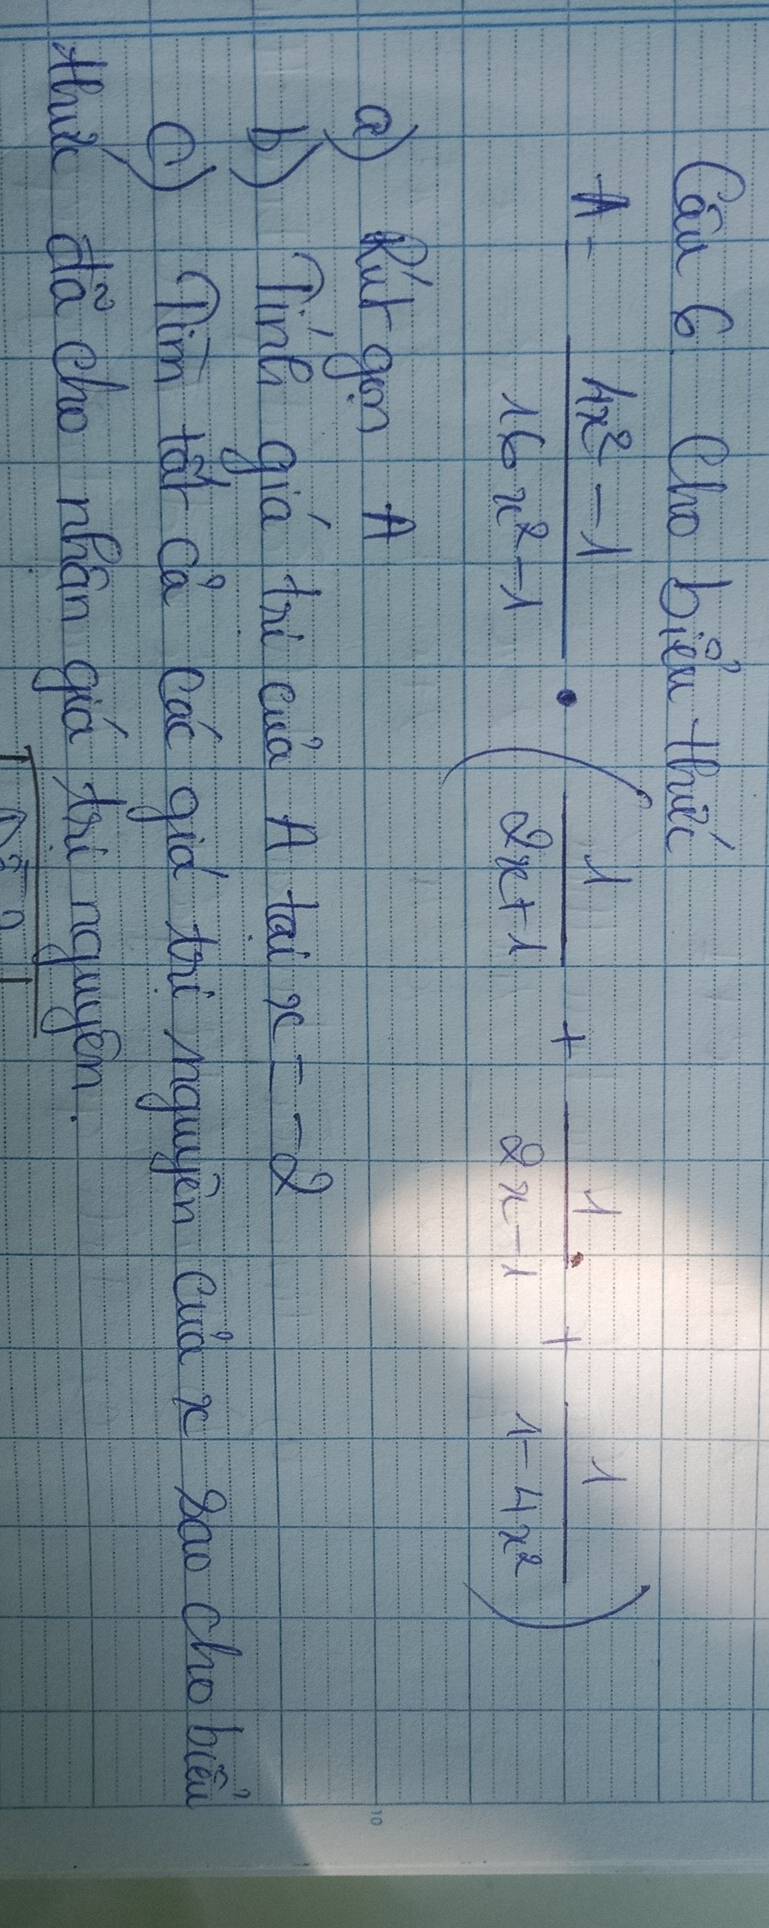 Câu 6 Cho biểu thức
A = \frac{4x^2-1}{16x^2-1} \cdot \left( \frac{1}{2x+1} + \frac{1}{2x-1} + \frac{1}{1-4x^2} \right)
a) Rút gọn A
b) Tính giá trị của A tại x = -2
c) Tìm tất cả các giá trị nguyên của x sao cho biểu
thức đã cho nhận giá trị nguyên.
10